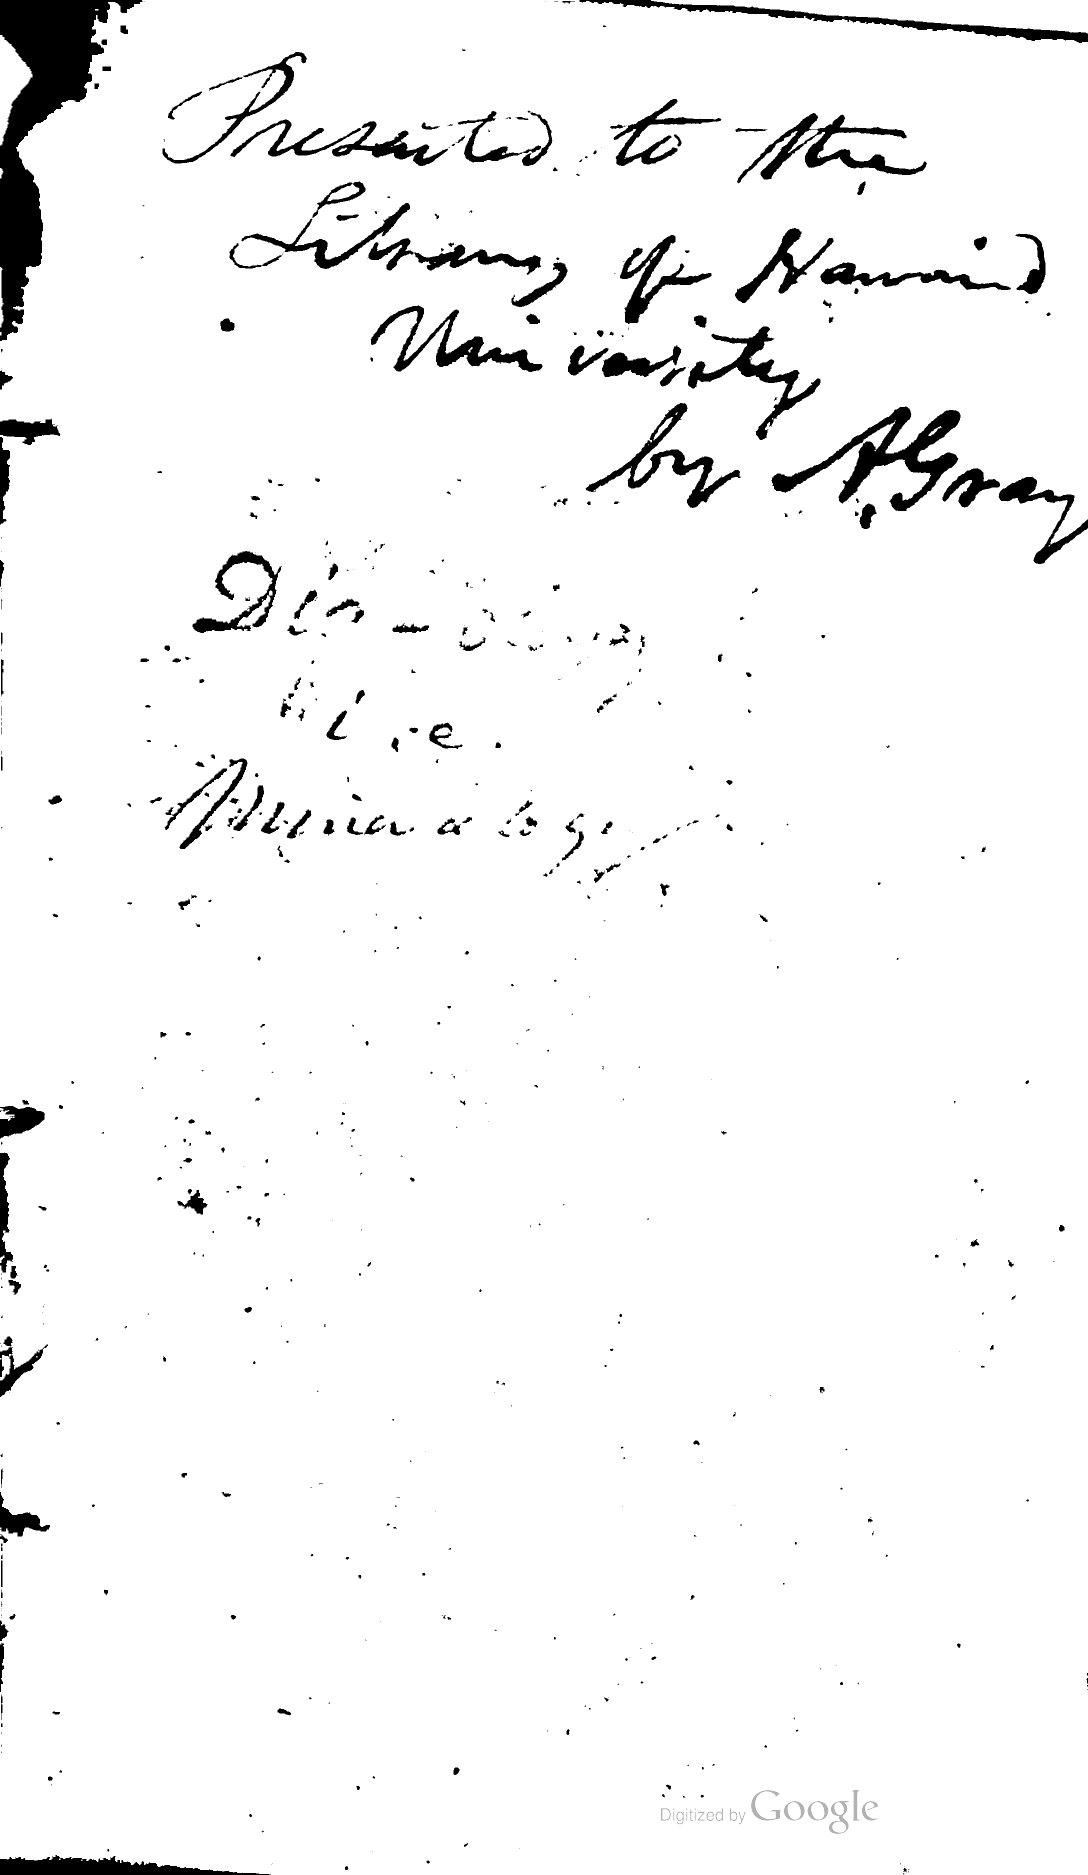 Presented to the
Library of Harvard
University
by A. Gray
i.e.
Mineralogy
Digitized by Google